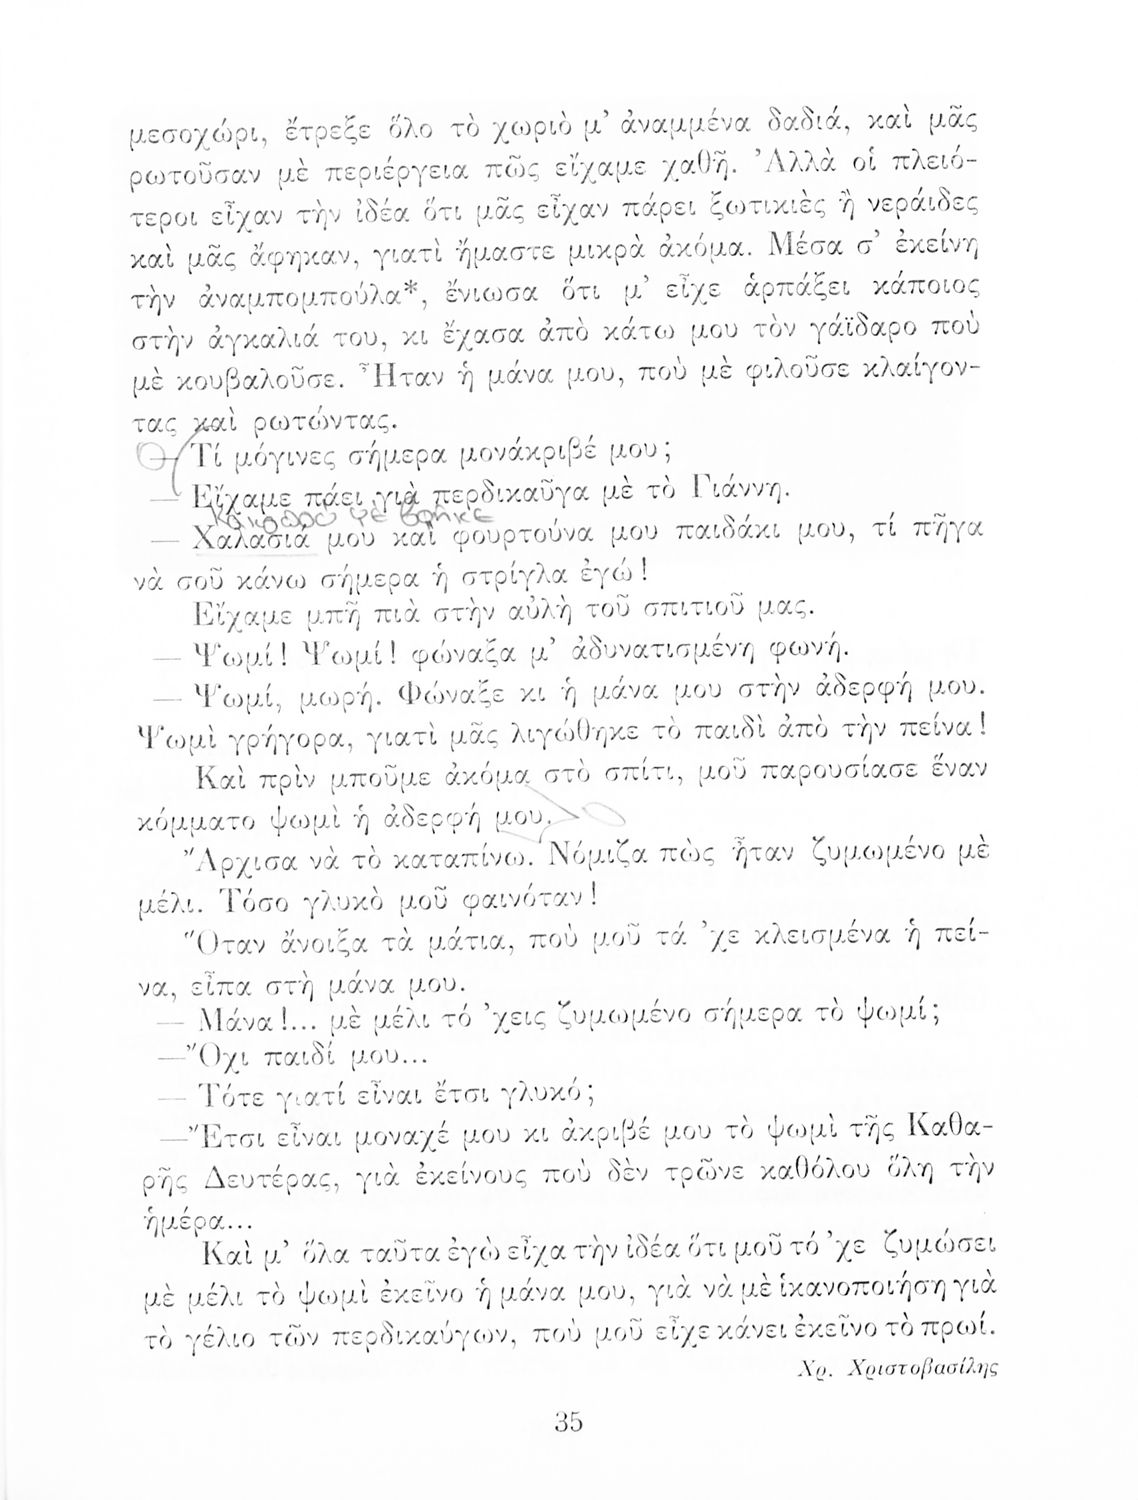 μεσοχώρι, ἔτρεξε ὅλο τὸ χωριὸ μ’ ἀναμμένα δαδιά, καὶ μᾶς
ρωτοῦσαν μὲ περιέργεια πῶς εἴχαμε χαθῆ. Ἀλλὰ οἱ πλειό-
τεροι εἶχαν τὴν ἰδέα ὅτι μᾶς εἶχαν πάρει ξωτικιὲς ἢ νεράιδες
καὶ μᾶς ἄφηκαν, γιατὶ ἤμαστε μικρὰ ἀκόμα. Μέσα σ’ ἐκείνη
τὴν ἀναμπομπούλα*, ἔνιωσα ὅτι μ’ εἶχε ἁρπάξει κάποιος
στὴν ἀγκαλιά του, κι ἔχασα ἀπὸ κάτω μου τὸν γάϊδαρο ποὺ
μὲ κουβαλοῦσε. Ἦταν ἡ μάνα μου, ποὺ μὲ φιλοῦσε κλαίγον-
τας καὶ ρωτώντας.
— Τί μόγινες σήμερα μονάκριβέ μου;
— Εἴχαμε πάει γιὰ περδικαῦγα μὲ τὸ Γιάννη.
Κακοπού μὲ βρῆκε
— Χαλασιά μου καὶ φουρτούνα μου παιδάκι μου, τί πῆγα
νὰ σοῦ κάνω σήμερα ἡ στρίγλα ἐγώ!
Εἴχαμε μπῆ πιὰ στὴν αὐλὴ τοῦ σπιτιοῦ μας.
— Ψωμί! Ψωμί! φώναξα μ’ ἀδυνατισμένη φωνή.
— Ψωμί, μωρή. Φώναξε κι ἡ μάνα μου στὴν ἀδερφή μου.
Ψωμὶ γρήγορα, γιατὶ μᾶς λιγώθηκε τὸ παιδὶ ἀπὸ τὴν πείνα!
Καὶ πρὶν μποῦμε ἀκόμα στὸ σπίτι, μοῦ παρουσίασε ἕναν
κόμματο ψωμὶ ἡ ἀδερφή μου.
Ἄρχισα νὰ τὸ καταπίνω. Νόμιζα πὼς ἦταν ζυμωμένο μὲ
μέλι. Τόσο γλυκὸ μοῦ φαινόταν!
Ὅταν ἄνοιξα τὰ μάτια, ποὺ μοῦ τά ’χε κλεισμένα ἡ πεί-
να, εἶπα στὴ μάνα μου.
— Μάνα!... μὲ μέλι τό ’χεις ζυμωμένο σήμερα τὸ ψωμί;
—Ὄχι παιδί μου...
— Τότε γιατί εἶναι ἔτσι γλυκό;
—Ἔτσι εἶναι μοναχέ μου κι ἀκριβέ μου τὸ ψωμὶ τῆς Καθα-
ρῆς Δευτέρας, γιὰ ἐκείνους ποὺ δὲν τρῶνε καθόλου ὅλη τὴν
ἡμέρα...
Καὶ μ’ ὅλα ταῦτα ἐγὼ εἶχα τὴν ἰδέα ὅτι μοῦ τό ’χε ζυμώσει
μὲ μέλι τὸ ψωμὶ ἐκεῖνο ἡ μάνα μου, γιὰ νὰ μὲ ἱκανοποιήση γιὰ
τὸ γέλιο τῶν περδικαύγων, ποὺ μοῦ εἶχε κάνει ἐκεῖνο τὸ πρωί.
Χρ. Χριστοβασίλης
35